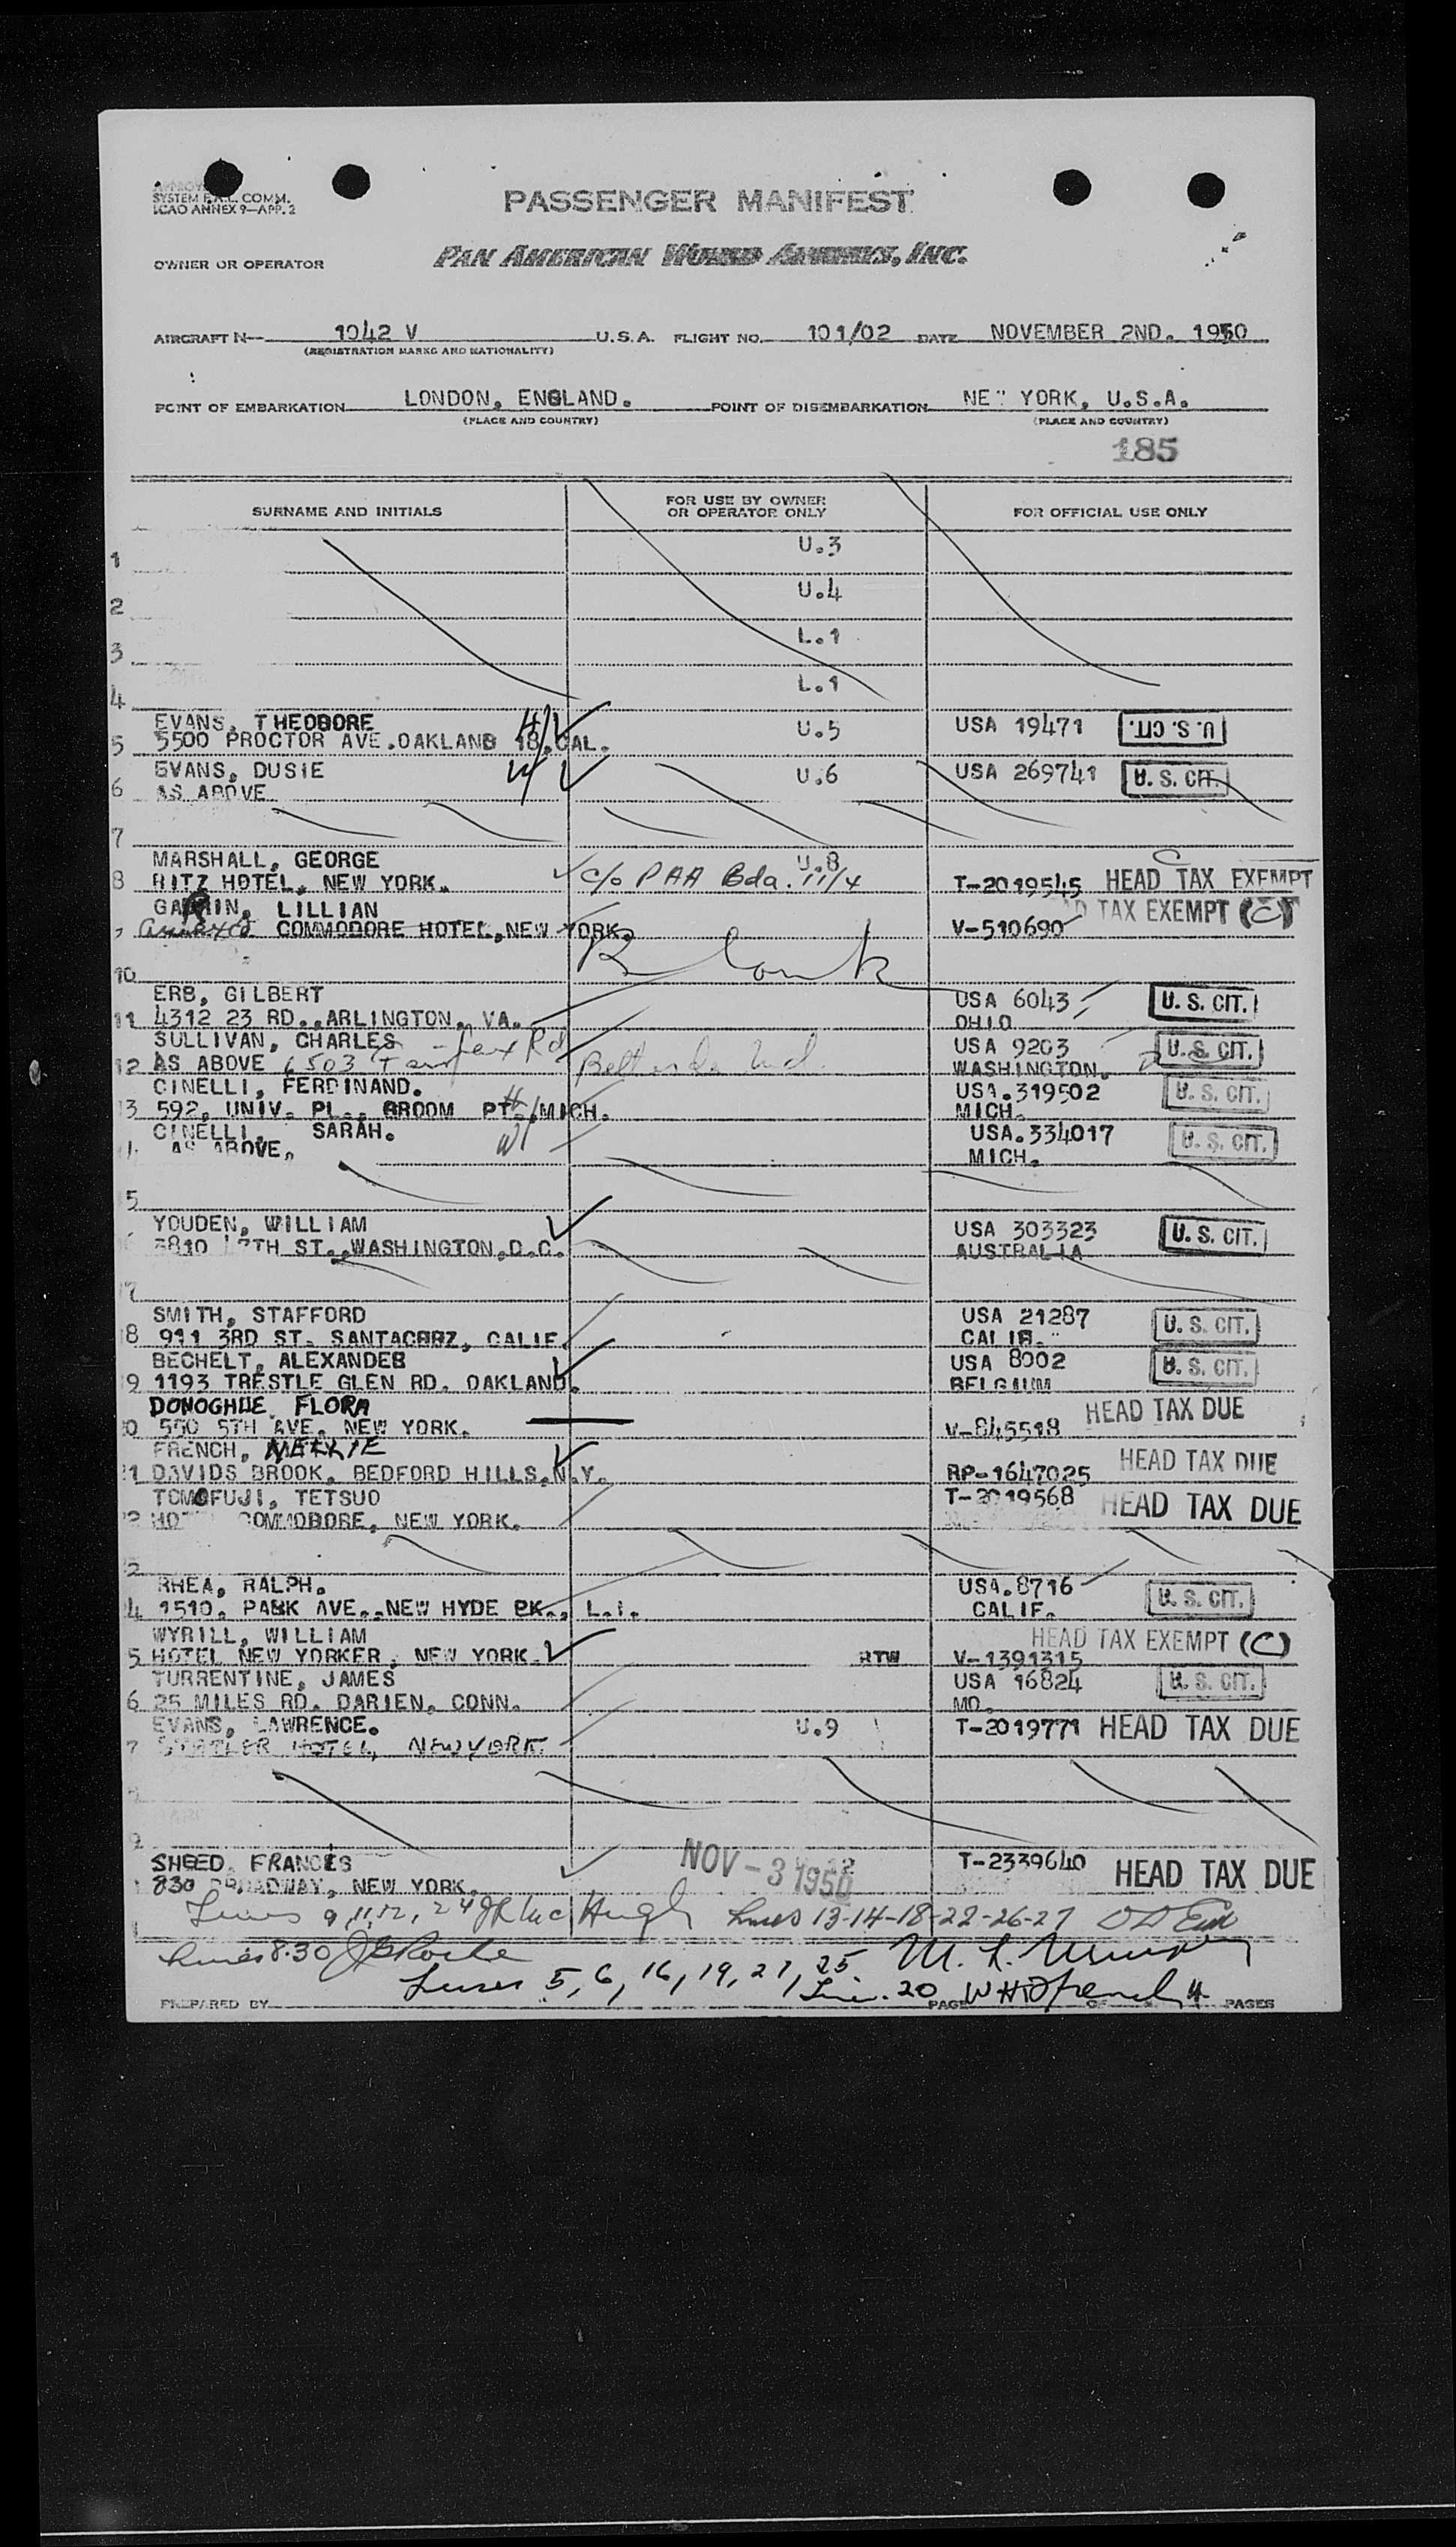 SYSTEM P.A.L. COMM.
ICAO ANNEX 9—APP. 2
PASSENGER MANIFEST
OWNER OR OPERATOR PAN AMERICAN WORLD AIRWAYS, INC.
AIRCRAFT N— 1042 V U.S.A. FLIGHT NO. 101/02 DATE NOVEMBER 2ND. 1950
(REGISTRATION MARKS AND NATIONALITY)
POINT OF EMBARKATION LONDON, ENGLAND. POINT OF DISEMBARKATION NE YORK, U.S.A.
(PLACE AND COUNTRY) (PLACE AND COUNTRY)
185
SURNAME AND INITIALS FOR USE BY OWNER OR OPERATOR ONLY FOR OFFICIAL USE ONLY
1 U.3
2 U.4
3 L.1
4 L.1
EVANS, THEODORE U.5 USA 19471 U. S. CIT.
5 5500 PROCTOR AVE.OAKLAND 18,CAL.
EVANS, DUSIE U.6 USA 269741 U. S. CIT.
6 AS ABOVE
7
MARSHALL, GEORGE U.8
8 RITZ HOTEL, NEW YORK. c/o PAA Bda. 11/4 T-2019545 HEAD TAX EXEMPT
LILLIAN TAX EXEMPT (C)
COMMODORE HOTEL,NEW YORK. V-510690
10
ERB, GILBERT USA 6043 U. S. CIT.
11 4312 23 RD.,ARLINGTON, VA. OHIO
SULLIVAN, CHARLES USA 9203 U. S. CIT.
12 AS ABOVE 6503 Rd WASHINGTON.
CINELLI, FERDINAND. USA.319502 U. S. CIT.
3 592, UNIV. PL., GROOM PT., MICH. MICH.
CINELLI, SARAH. USA.334017 U. S. CIT.
AS ABOVE, MICH.
5
YOUDEN, WILLIAM USA 303323 U. S. CIT.
ST.,WASHINGTON,D.C. AUSTRALIA
7
SMITH, STAFFORD USA 21287 U. S. CIT.
8 911 3RD ST. SANTACRRZ, CALIF. CALIF.
BECHELT, ALEXANDER USA 8002 U. S. CIT.
9 1193 TRESTLE GLEN RD. OAKLAND. BELGIUM
DONOGHUE FLORA HEAD TAX DUE
0 550 5TH AVE. NEW YORK. V-845518
FRENCH, NELLIE HEAD TAX DUE
21 DAVIDS BROOK, BEDFORD HILLS,N.Y. RP-1647025
TOMOFUJI, TETSUO T-2019568 HEAD TAX DUE
COMMODORE, NEW YORK.
2
RHEA, RALPH. USA.8716 U. S. CIT.
4 1510. PARK AVE.,NEW HYDE PK., L.I. CALIF.
WYRILL, WILLIAM HEAD TAX EXEMPT (C)
5 HOTEL NEW YORKER, NEW YORK. RTW V-1391315
TURRENTINE, JAMES USA 16824 U. S. CIT.
6 25 MILES RD. DARIEN, CONN. MO.
EVANS, LAWRENCE. U.9 T-2019771 HEAD TAX DUE
7 HOTEL, NEW YORK.
SHEED, FRANCES NOV - 3 1950 T-2339640 HEAD TAX DUE
830 BROADWAY, NEW YORK.
Lines 9,11,12, 24 JR McHugh Lines 13-14-18-22-26-27
Lines 8.30
Lines 5, 6, 16, 19, 21, 25
Line 20
PREPARED BY PAGE OF 4 PAGES